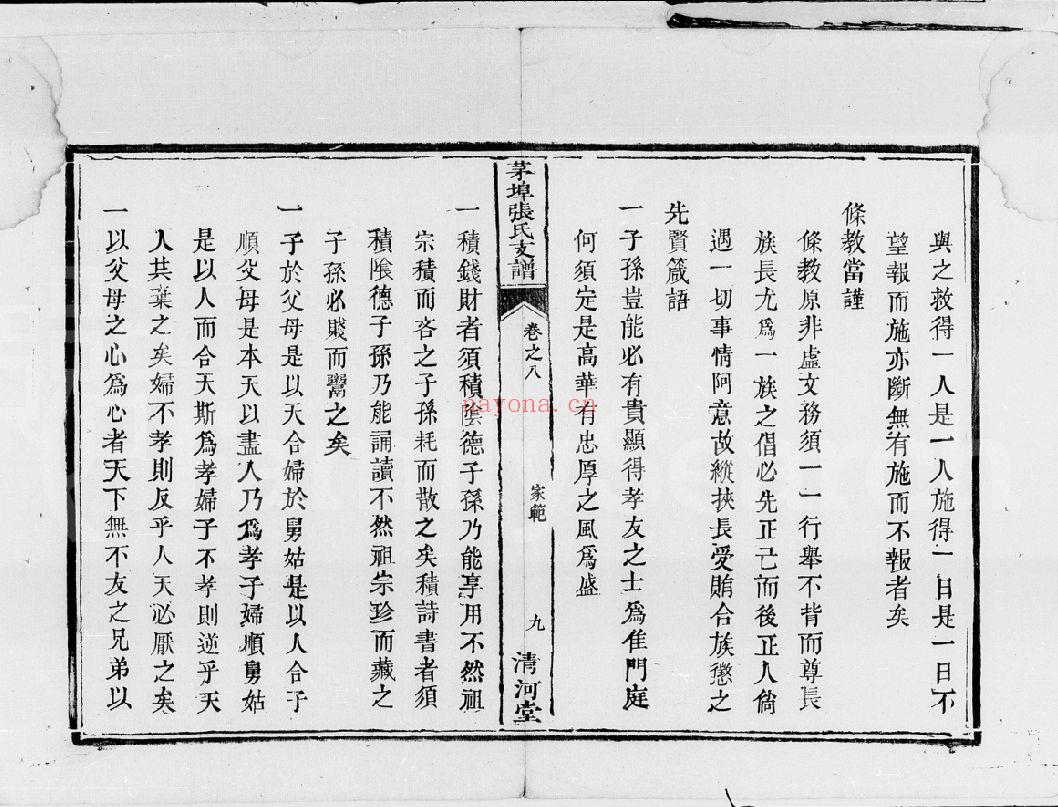 與之救得一人是一人施得一日是一日不
望報而施亦斷無有施而不報者矣
條教當謹
條教原非虛文務須一一行舉不背而尊長
族長尤爲一族之倡必先正己而後正人倘
遇一切事情阿意故縱挾長受賄合族懲之
先賢箴語
一子孫豈能必有貴顯得孝友之士爲隹門庭
何須定是高華有忠厚之風爲盛
茅埠張氏支譜
卷之八
家範
九
清河堂
一積錢財者須積陰德子孫乃能享用不然祖
宗積而吝之子孫耗而散之矣積詩書者須
積陰德子孫乃能誦讀不然祖宗珍而藏之
子孫必賤而鬻之矣
一子於父母是以天合婦於舅姑是以人合子
順父母是本天以盡人乃爲孝子婦順舅姑
是以人而合天斯爲孝婦子不孝則逆乎天
人共棄之矣婦不孝則反乎人天必厭之矣
一以父母之心爲心者天下無不友之兄弟以
nayona.cn